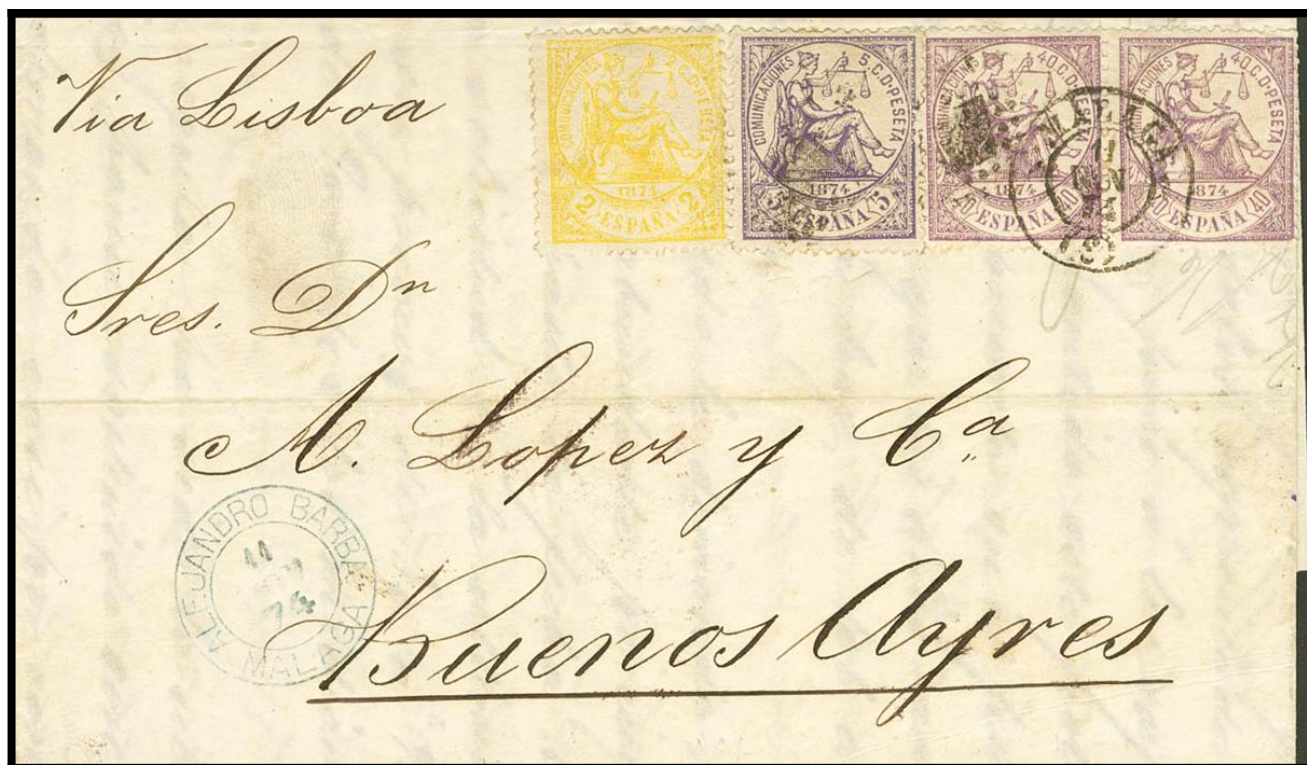 Via Lisboa
COMUNICACIONES 2 C. D. PESETA
1874
2 ESPAÑA 2
COMUNICACIONES 5 C. D. PESETA
1874
5 ESPAÑA 5
COMUNICACIONES 40 C. D. PESETA
1874
40 ESPAÑA 40
COMUNICACIONES 40 C. D. PESETA
1874
40 ESPAÑA 40
MALAGA
11
74
Sres. Dn
A. Lopez y Ca.
ALEJANDRO BARBA
11
74
MALAGA
Buenos Ayres